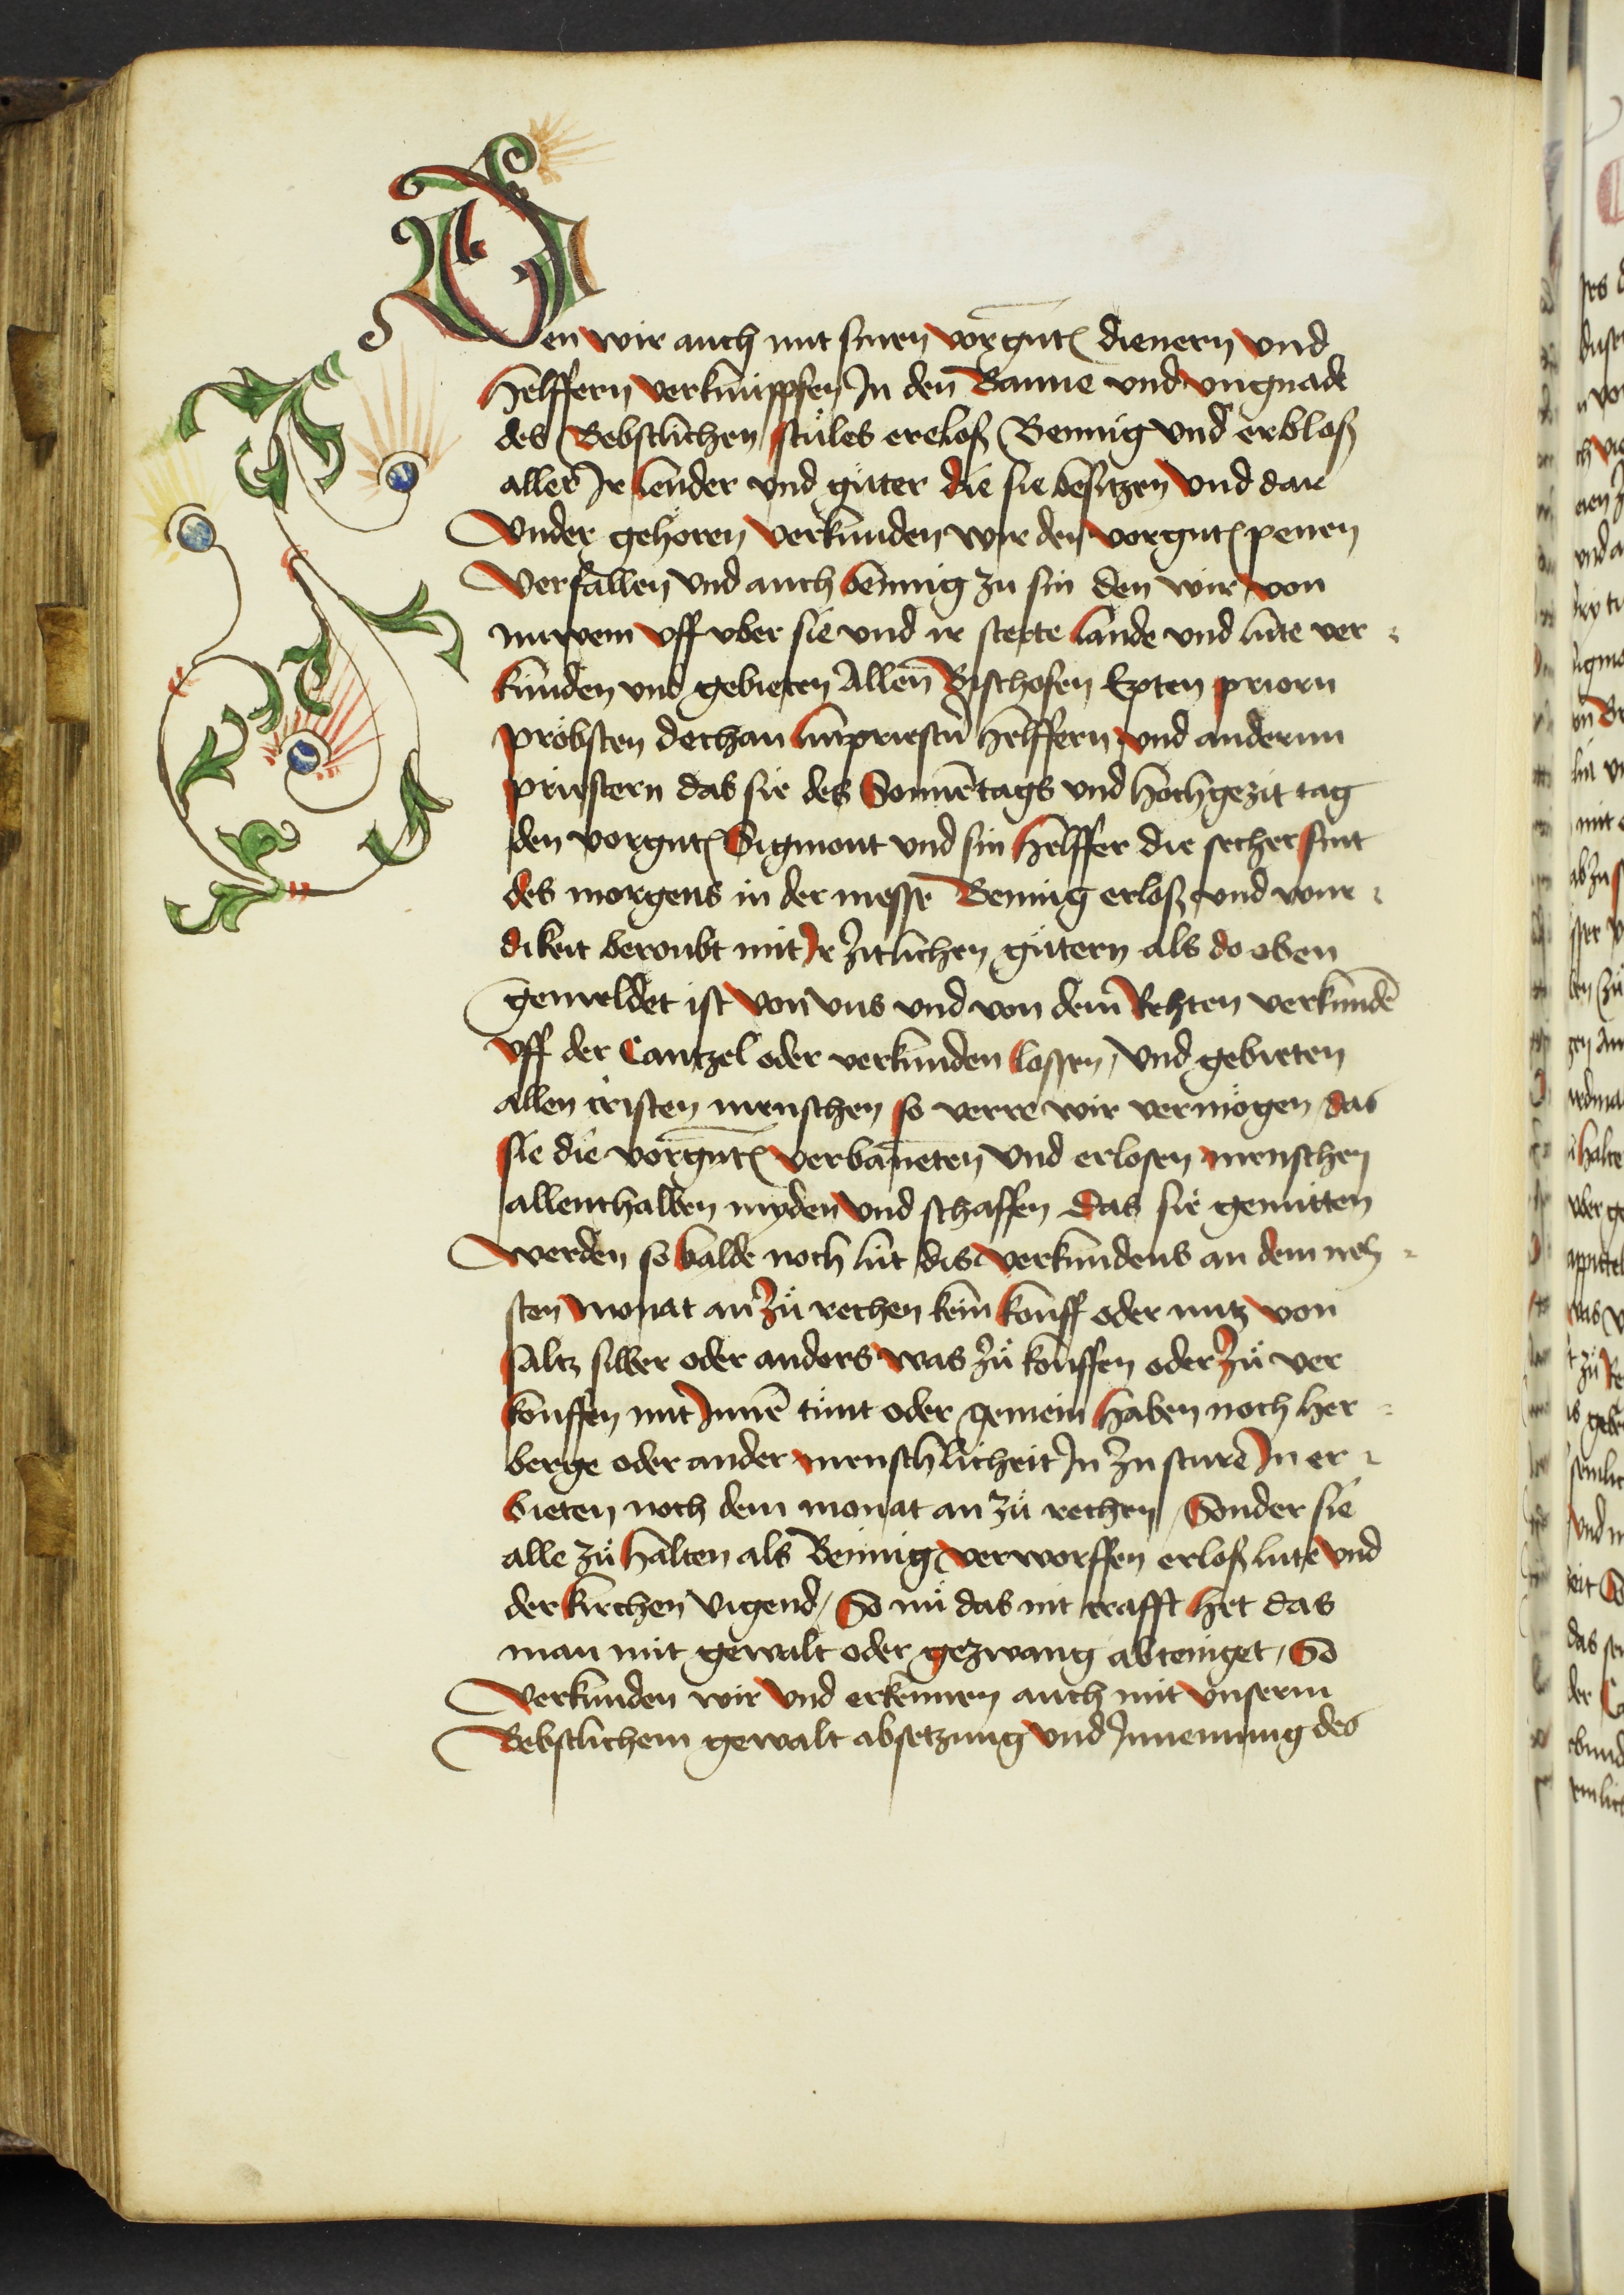 Den wir auch mit sinen vorgnt̄ dienern vnd
helffern verknúppfen Jn den Banne vnd vngnade
des Bebstlichen stůles erelosz Bennig vnd erblosz
aller Jr lender vnd gůter die sie besitzen vnd dar
vnder gehören verkunden wir den vorgnt̄ penen
verfallen vnd auch bennig zu sin den wir von
nuwem vff vber sie vnd ir stette lande vnd lúte ver
kunden vnd gebieten Allen Bischofen Epten priorn
pröbsten dechan lútpriestn̄ helffern vnd andernn
priestern das sie des Sonnētags vnd hochgezit tag
den vorgnt̄ Sigmont vnd sin helffer die secher sint
des morgens in der messe Bennig erlosz vnd wur
dikeit beroubt mit Jr zitlichen gůtern als do oben
gemeldet ist von vns vnd von dem Rehten verkundē
vff der Cantzel oder verkunden lossen / vnd gebieten
allen cristen menschen so verre wir vermögen / das
sie die vorgnt̄ verbanneten vnd erlosen menschen
allenthalben myden vnd schaffen das sie gemitten
werden so balde noch lut dis verkundens an dem neh
sten monat an zů rechen kein kouff oder nutz von
saltz silber oder anders was zů kouffen oder zů ver
kouffen mit Jnnē tůnt oder gemein haben noch her
berge oder ander menschlicheit Jn zu sture Jn er
bieten noch dem monat an zů rechen / Sonder sie
alle zů halten als Bennig verworffen erlosz lute vnd
der kirchen vigend / So nů das nit crafft het das
man mit gewalt oder gezwang abteniget / So
verkunden wir vnd erkennen auch mit vnserm
Bebstlichem gewalt absetzung vnd Jnnemung des